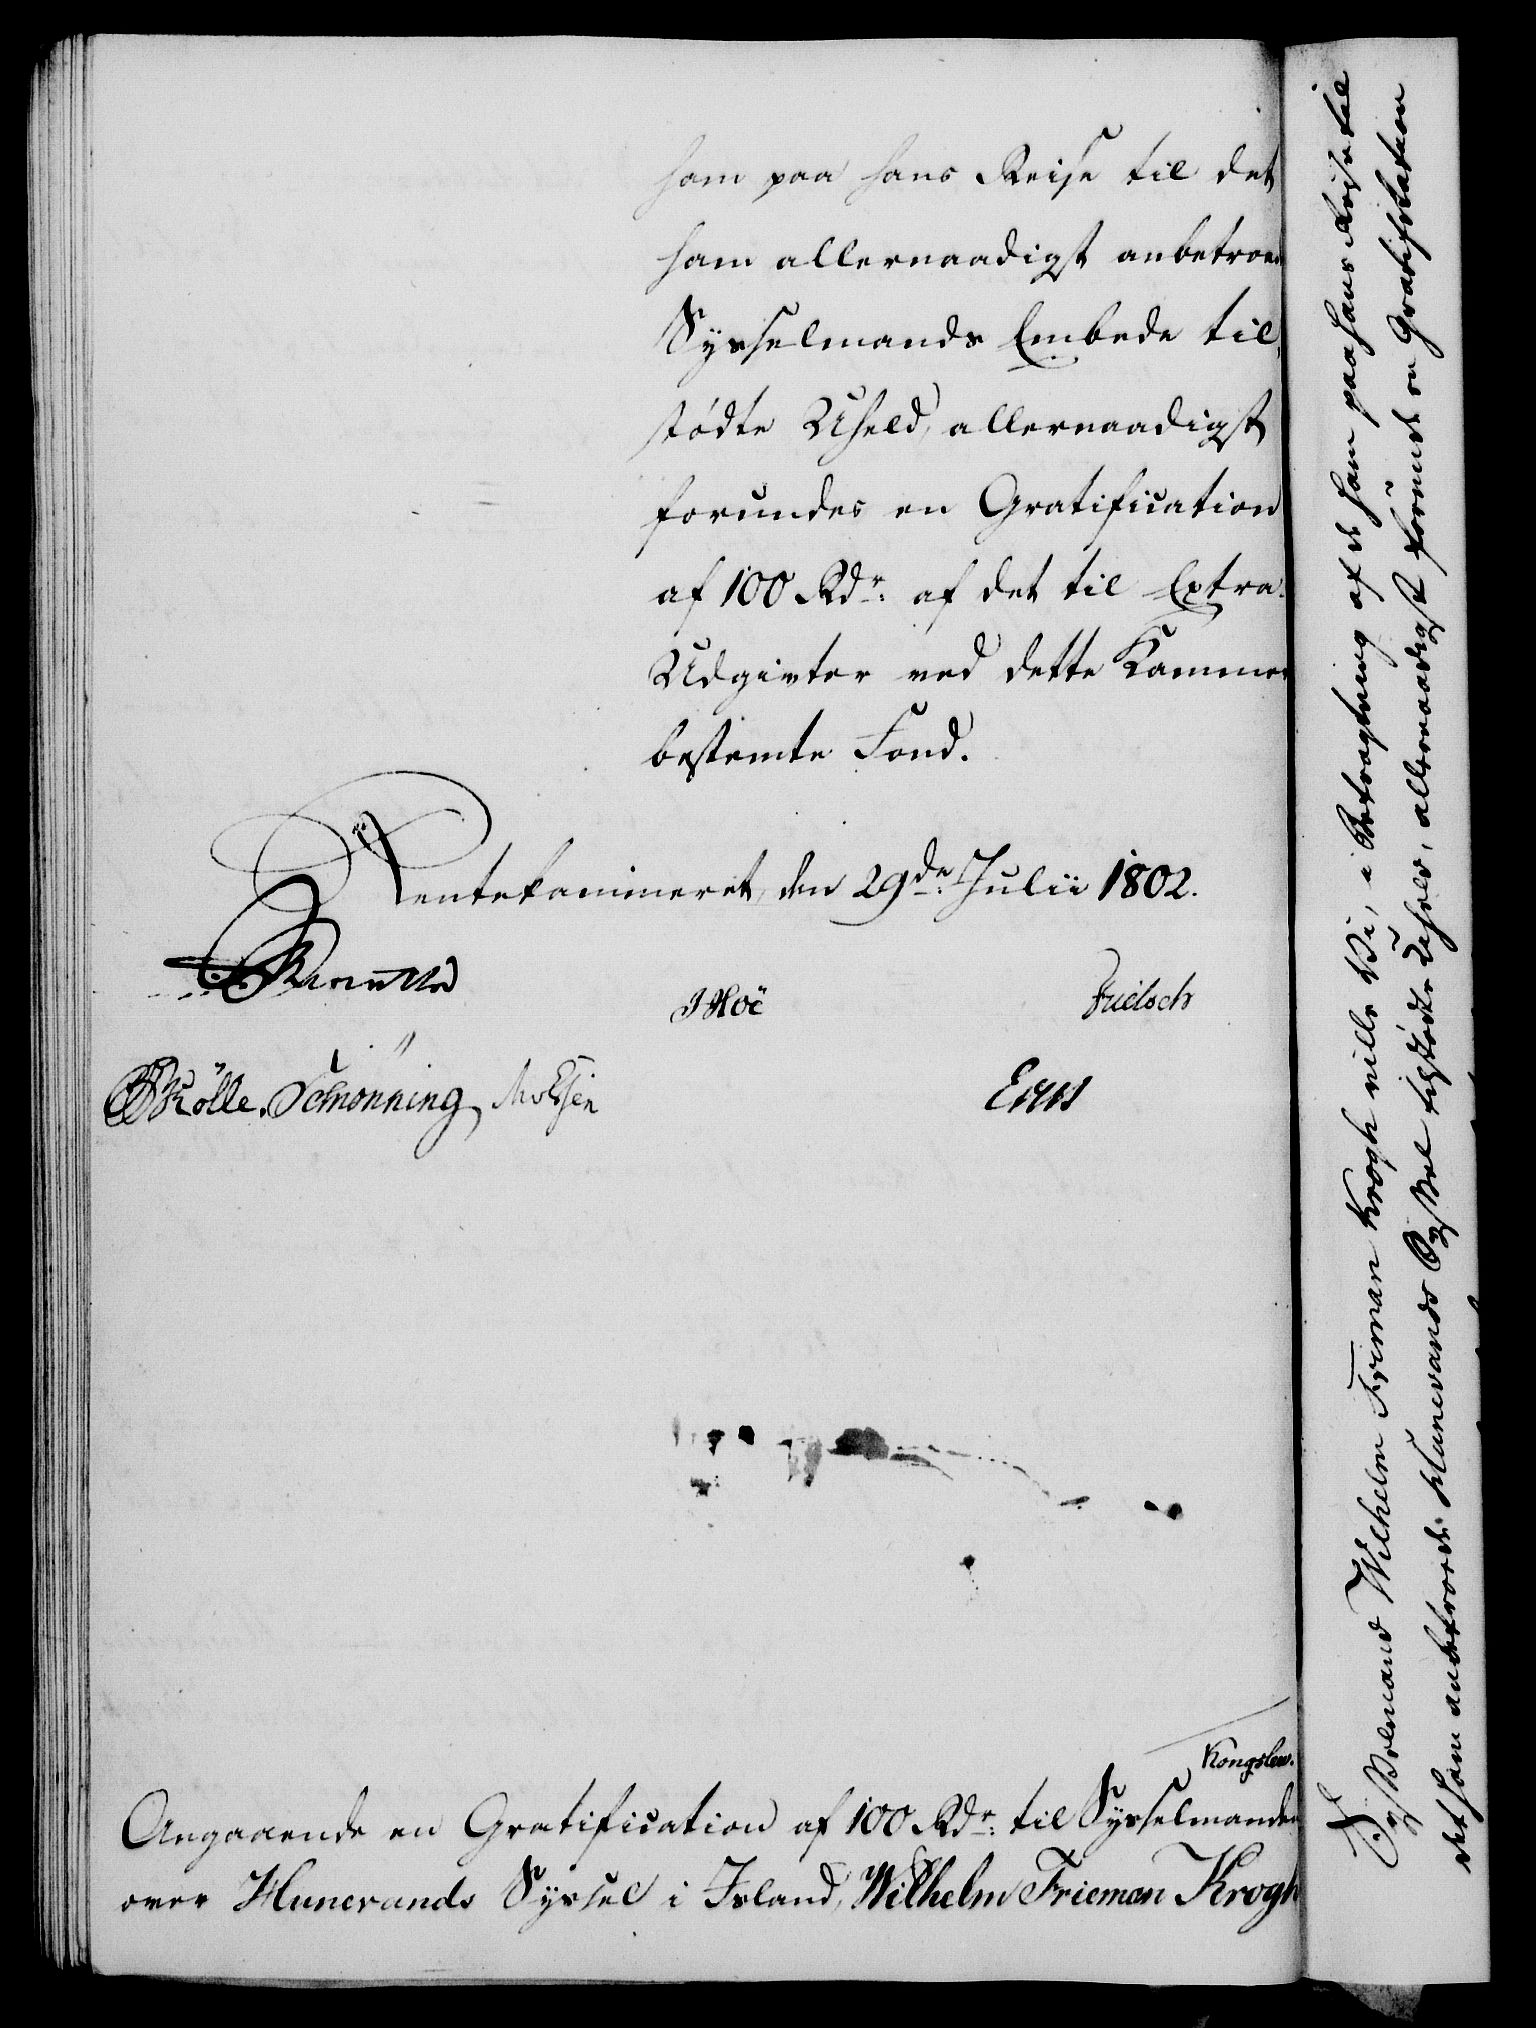 ham paa hans Reise til det
ham allernaadigst anbetroede
Sysselmands Embede til-
stødte Uheld, allernaadigst
forundes en Gratification
af 100 Rdr. af det til Extra-
Udgivter ved dette Kammer
bestemte Fond.
Rentekammeret, den 29de Julii 1802.
JHoë
Rölle. Schønning
Kongslew.
Angaaende en Gratification af 100 Rdr. til Sysselmanden
over Hunevands Syssel i Island, Wilhelm Frieman Krogh
Sysselmand Wilhelm Friman Krogh ville Vi, i Betragtning af de ham paa hans Reise til
det ham anbetroede Hunevands Syssel tilstødte Uheld, allernaadigst forunde en Gratification